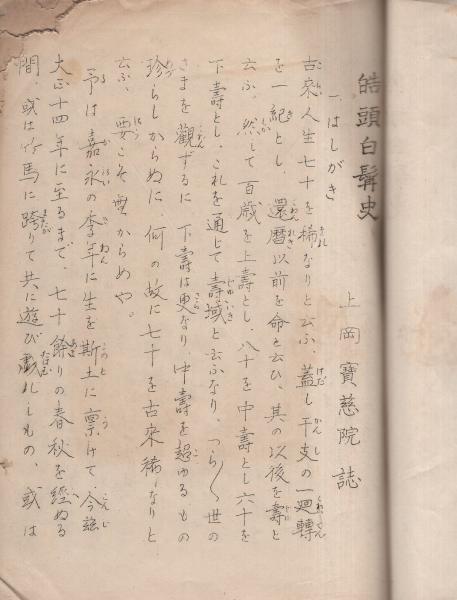 皓頭白髯史
一、はしがき
上岡寶慈院誌
古來人生七十を稀なりと云ふ、蓋し干支の一廻轉
を一紀とし、還暦以前を命と云ひ、其の以後を壽と
云ふ、然して百歳を上壽とし、八十を中壽とし六十を
下壽とし、これを通じて壽域と云ふなり、つら〳〵世の
さまを觀ずるに、下壽は更なり、中壽を超ゆるもの
珍らしからぬに、何の故に七十を古來稀なりと
云ふ、要こそ無からめや。
予は嘉永の季年に生を斯土に禀けて、今玆
大正十四年に至るまで、七十餘りの春秋を經ぬる
間、或は竹馬に跨りて共に遊び戲れしもの、或は